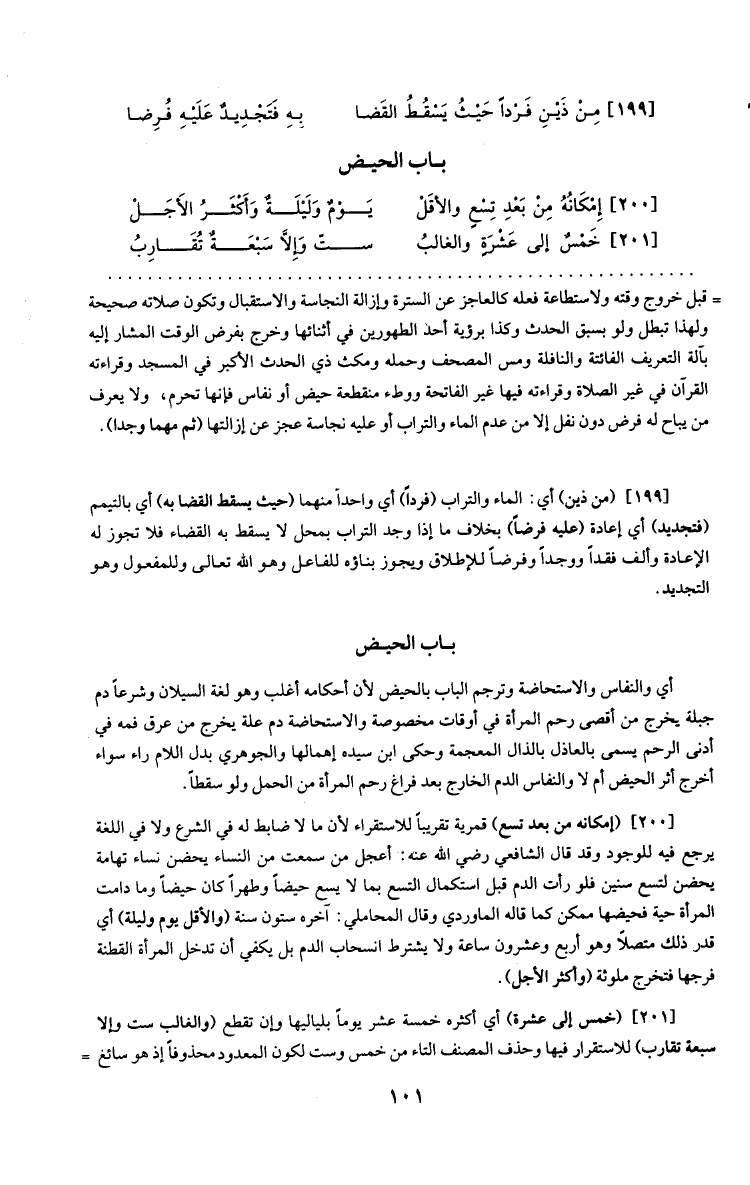 [١٩٩] مِنْ ذَيْنِ فَرْداً حَيْثُ يَسْقُطُ القَضا بِهِ فَتَجْدِيدٌ عَلَيْهِ فُرِضا
باب الحيض
[٢٠٠] إِمْكَانُهُ مِنْ بَعْدِ تِسْعٍ والأقَلْ يَوْمٌ وَلَيْلَةٌ وَأَكْثَرُ الأَجَلْ
[٢٠١] خَمْسٌ إلى عَشْرَةٍ والغالبُ ستٌ وَإِلاَّ سَبْعَةٌ تُقَارِبُ
= قبل خروج وقته ولاستطاعة فعله كالعاجز عن السترة وإزالة النجاسة والاستقبال وتكون صلاته صحيحة
ولهذا تبطل ولو بسبق الحدث وكذا برؤية أحد الطهورين في أثنائها وخرج بفرض الوقت المشار إليه
بآلة التعريف الفائتة والنافلة ومس المصحف وحمله ومكث ذي الحدث الأكبر في المسجد وقراءته
القرآن في غير الصلاة وقراءته فيها غير الفاتحة ووطء منقطعة حيض أو نفاس فإنها تحرم، ولا يعرف
من يباح له فرض دون نفل إلا من عدم الماء والتراب أو عليه نجاسة عجز عن إزالتها (ثم مهما وجدا).
[١٩٩] (من ذين) أي: الماء والتراب (فرداً) أي واحداً منهما (حيث يسقط القضا به) أي بالتيمم
(فتجديد) أي إعادة (عليه فرضاً) بخلاف ما إذا وجد التراب بمحل لا يسقط به القضاء فلا تجوز له
الإعادة وألف فقداً ووجداً وفرضاً للإطلاق ويجوز بناؤه للفاعل وهو الله تعالى وللمفعول وهو
التجديد.
باب الحيض
أي والنفاس والاستحاضة وترجم الباب بالحيض لأن أحكامه أغلب وهو لغة السيلان وشرعاً دم
جبلة يخرج من أقصى رحم المرأة في أوقات مخصوصة والاستحاضة دم علة يخرج من عرق فمه في
أدنى الرحم يسمى بالعاذل بالذال المعجمة وحكى ابن سيده إهمالها والجوهري بدل اللام راء سواء
أخرج أثر الحيض أم لا والنفاس الدم الخارج بعد فراغ رحم المرأة من الحمل ولو سقطاً.
[٢٠٠] (إمكانه من بعد تسع) قمرية تقريباً للاستقراء لأن ما لا ضابط له في الشرع ولا في اللغة
يرجع فيه للوجود وقد قال الشافعي رضي الله عنه: أعجل من سمعت من النساء يحضن نساء تهامة
يحضن لتسع سنين فلو رأت الدم قبل استكمال التسع بما لا يسع حيضاً وطهراً كان حيضاً وما دامت
المرأة حية فحيضها ممكن كما قاله الماوردي وقال المحاملي: آخره ستون سنة (والأقل يوم وليلة) أي
قدر ذلك متصلاً وهو أربع وعشرون ساعة ولا يشترط انسحاب الدم بل يكفي أن تدخل المرأة القطنة
فرجها فتخرج ملوثة (وأكثر الأجل).
[٢٠١] (خمس إلى عشرة) أي أكثره خمسة عشر يوماً بلياليها وإن تقطع (والغالب ست وإلا
سبعة تقارب) للاستقرار فيها وحذف المصنف التاء من خمس وست لكون المعدود محذوفاً إذ هو سائغ =
١٠١